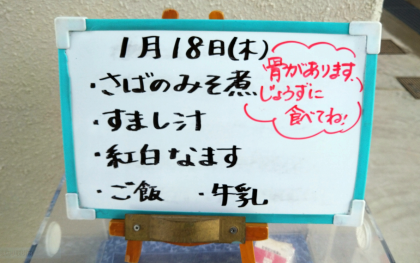 1月18日(木)
・さばのみそ煮
・すまし汁
・紅白なます
・ご飯 ・牛乳
骨があります。
じょうずに
食べてね!